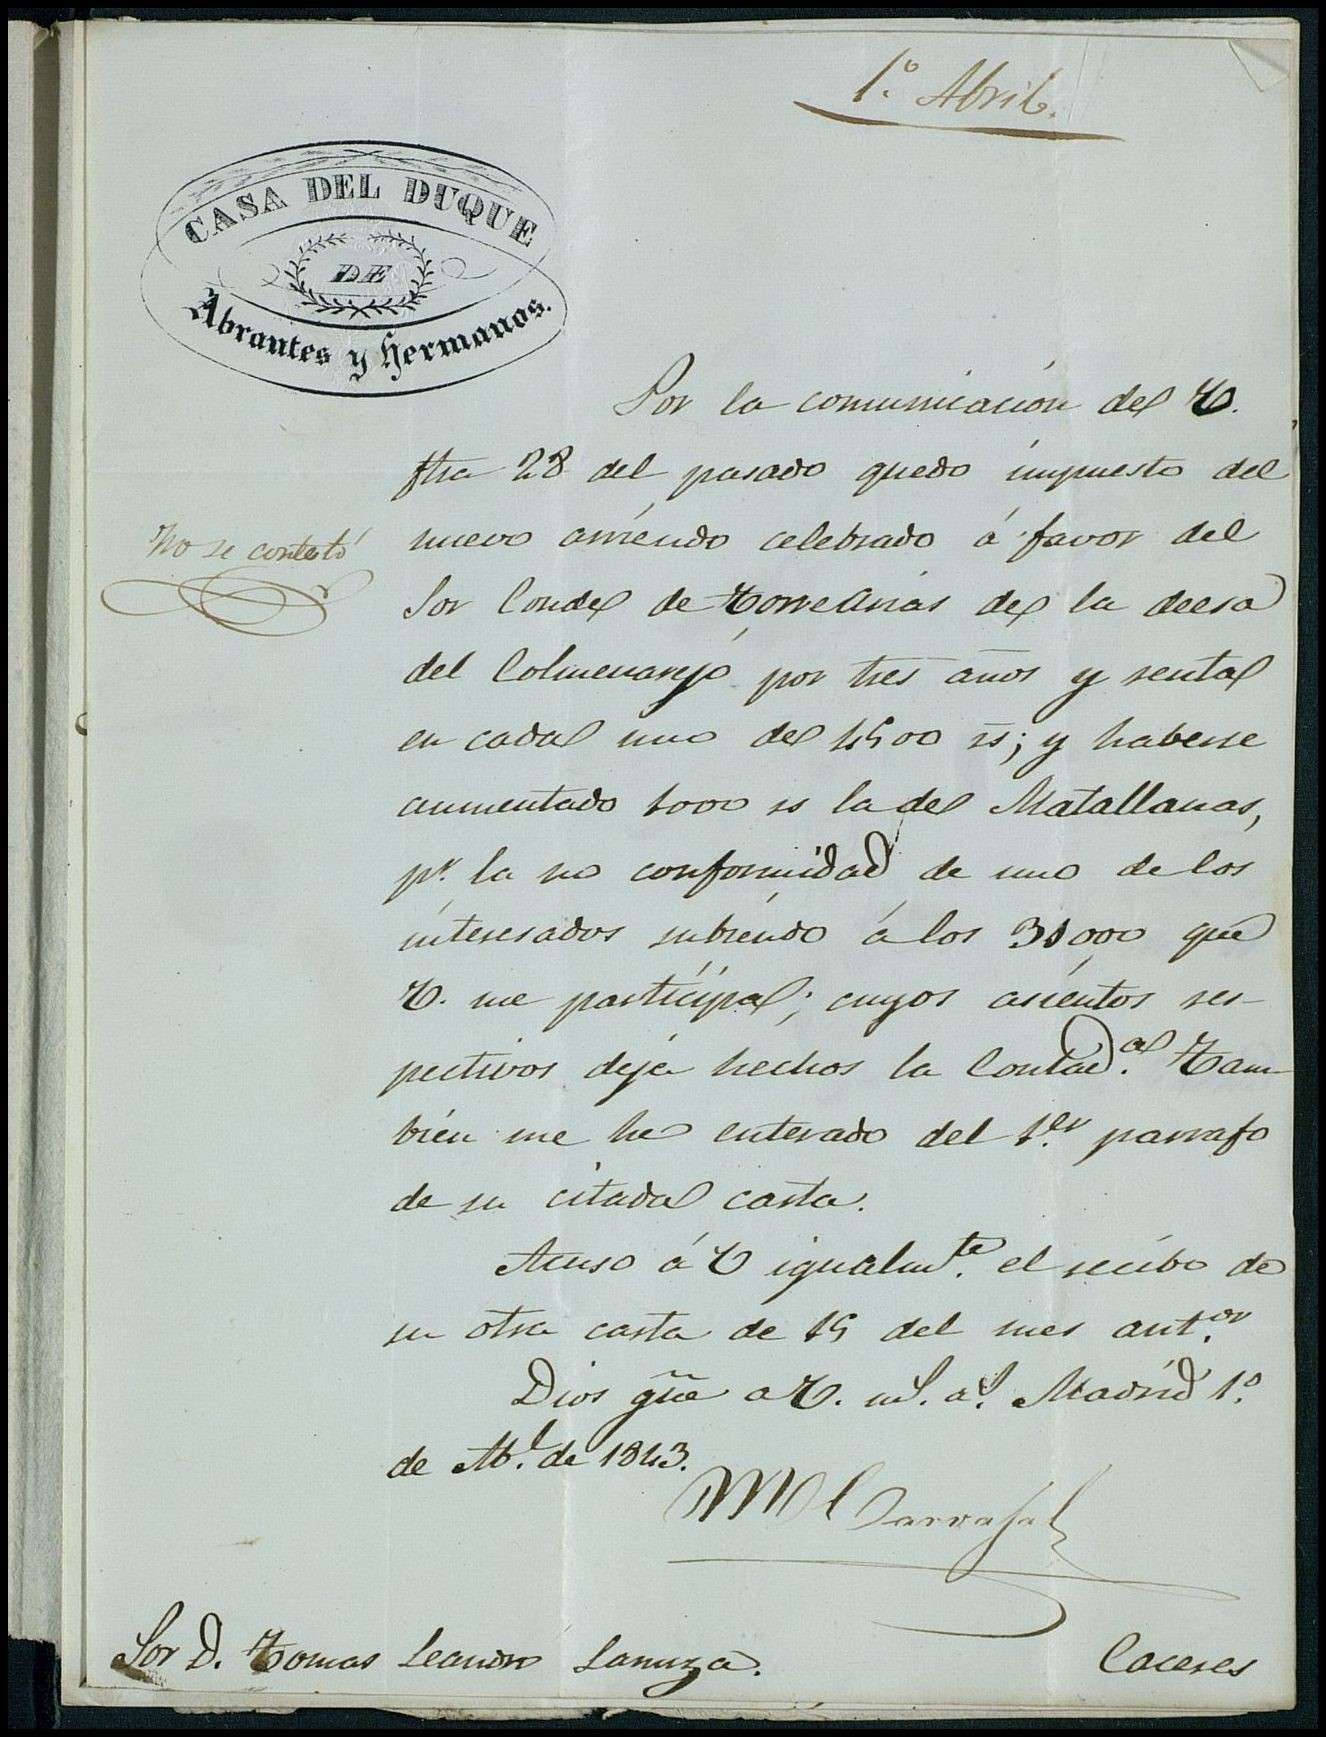 1.º Abril.
CASA DEL DUQUE
DE
Abrantes y Hermanos.
Por la comunicacion de V.
fha 28 del pasado quedo impuesto del
nuevo arriendo celebrado á favor del
No se contestó
Sor Conde de Torre Arias de la deesa
del Colmenarejo por tres años y renta
en cada uno de 1500 rs; y haberse
aumentado 1000 rs la de Matallanas,
pr. la no conformidad de uno de los
interesados subiendo á los 31000 que
V. me participa; cuyos asientos res-
pectivos deja hechos la Contad.a Tam-
bien me he enterado del 1.er parrafo
de su citada carta.
Acuso á V igualm.te el recibo de
su otra carta de 15 del mes ant.or
Dios gũe a V. m.s a.s Madrid 1.º
de Ab.l de 1843.
M Carvajal
Sor D. Tomas Leandro Lanuza.
Caceres